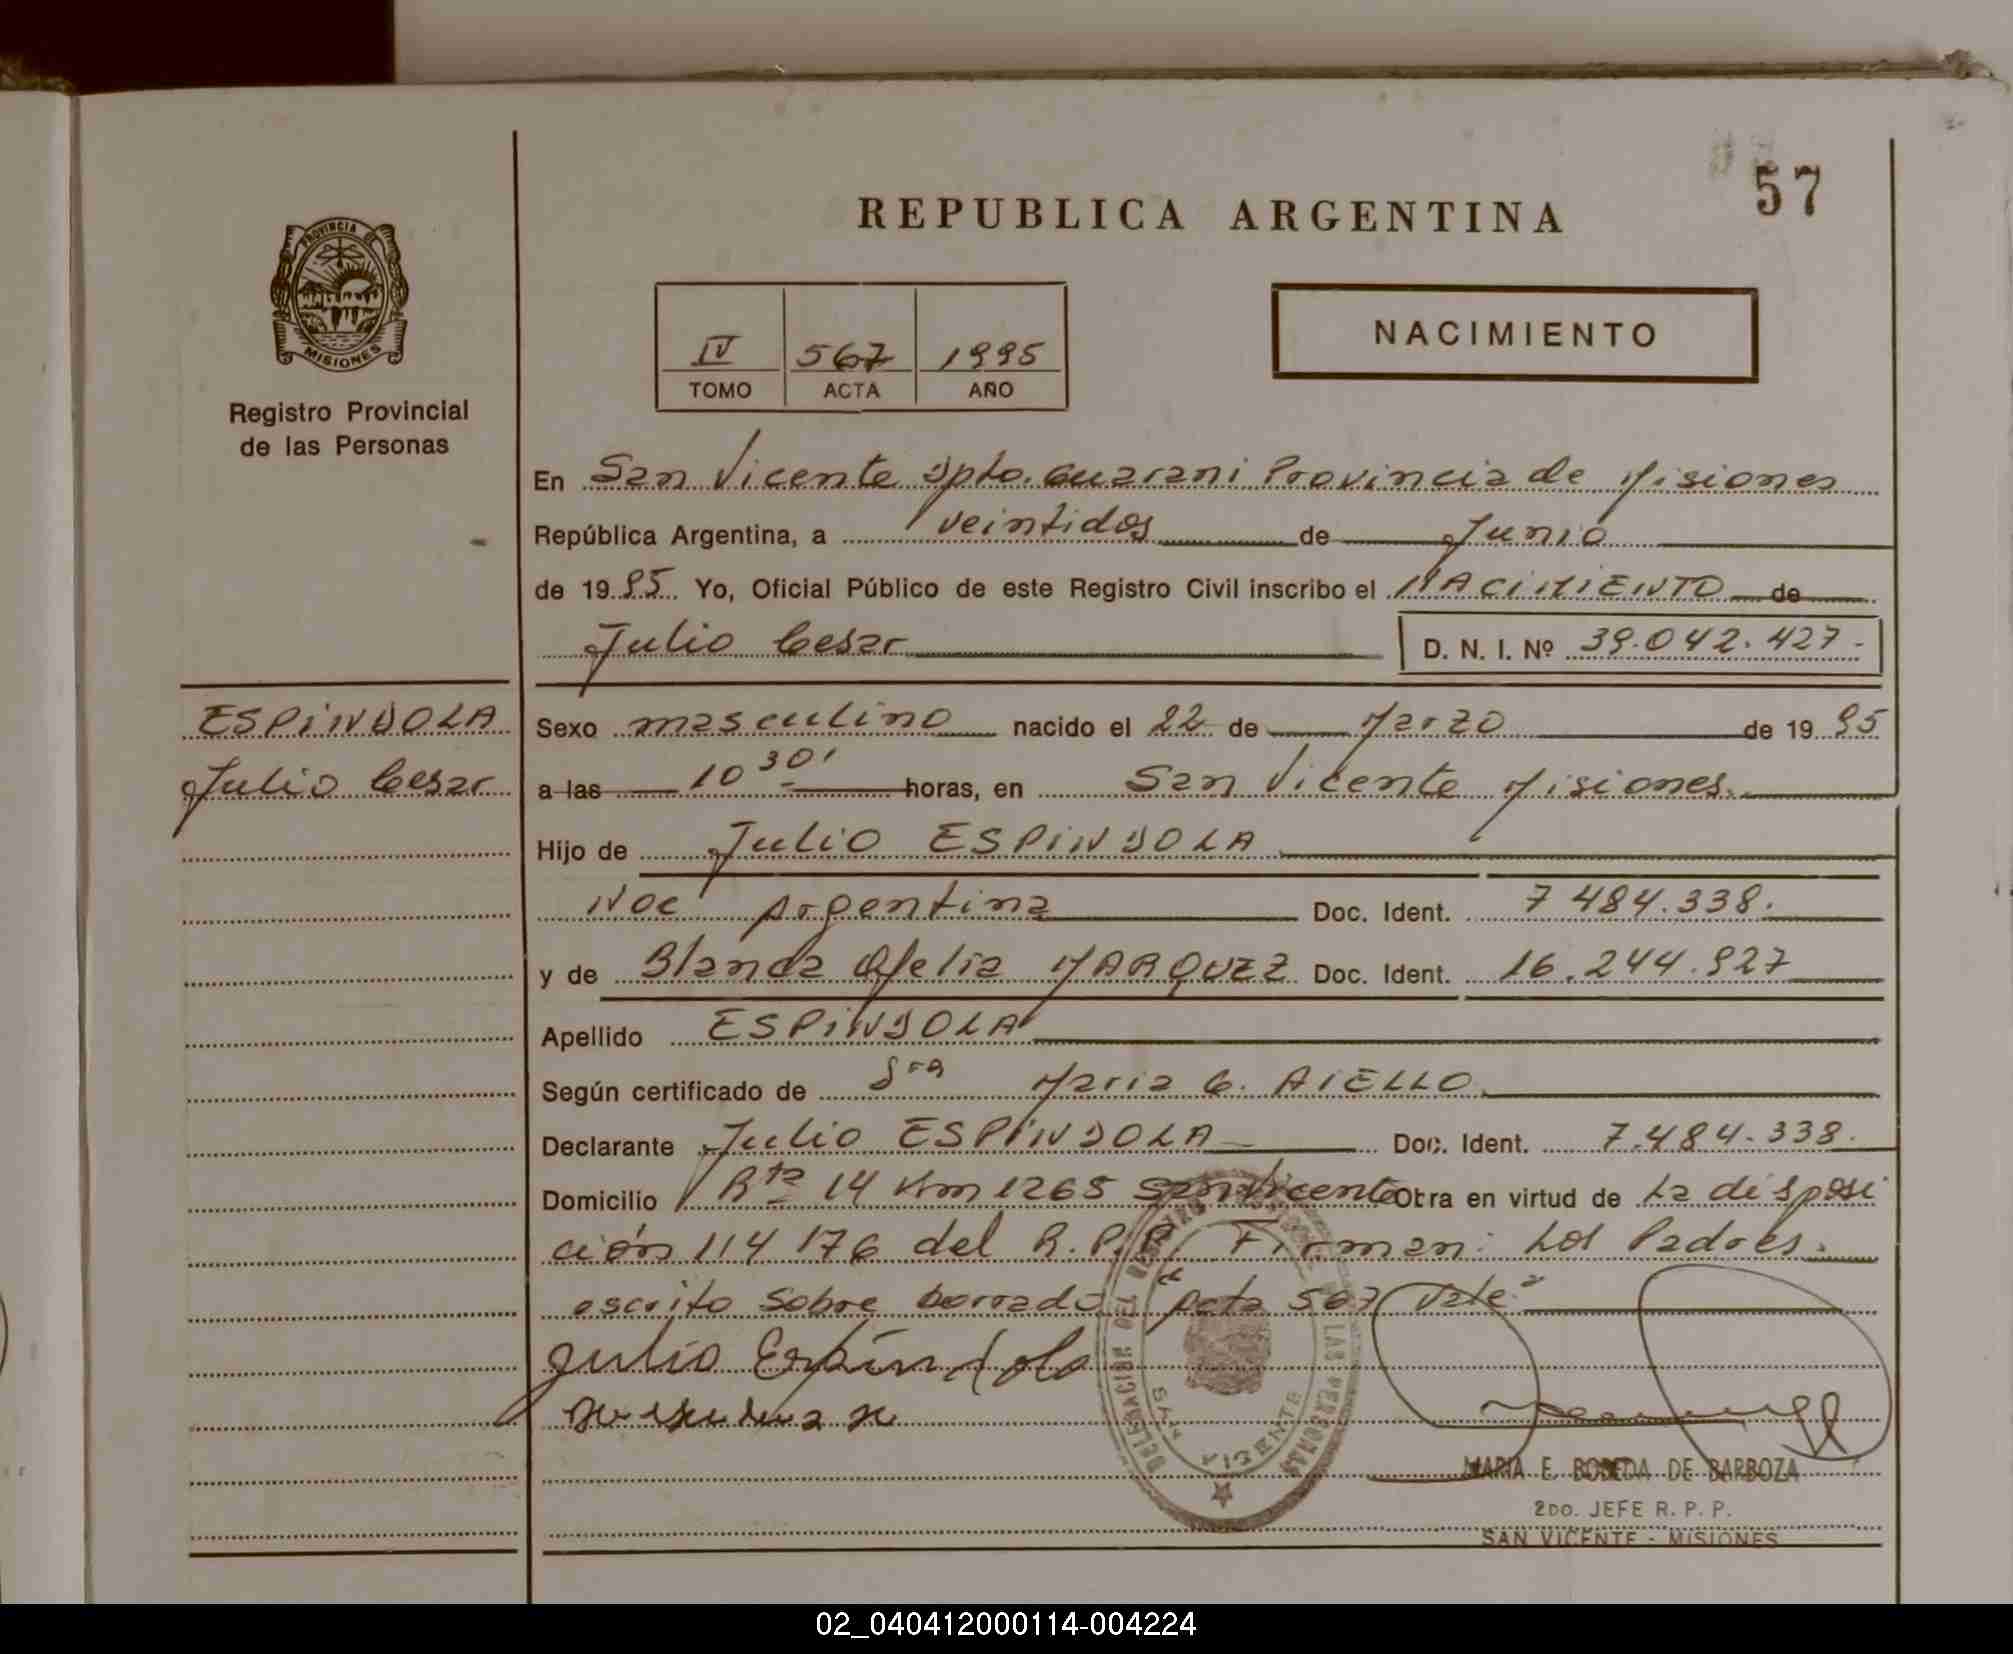 57
REPUBLICA ARGENTINA
PROVINCIA DE
MISIONES
Registro Provincial
de las Personas
IV 567 1995
TOMO ACTA AÑO
NACIMIENTO
En San Vicente Dpto. Guarani Provincia de Misiones
República Argentina, a veintidos de Junio
de 1995 Yo, Oficial Público de este Registro Civil inscribo el NACIMIENTO de
Julio Cesar D. N. I. Nº 39.042.427.-
ESPINDOLA
Julio Cesar
Sexo masculino nacido el 22 de Marzo de 1995
a las 10 30' horas, en San Vicente Misiones.
Hijo de Julio ESPINDOLA
Nac Argentina Doc. Ident. 7 484.338.
y de Blanca Ofelia MARQUEZ Doc. Ident. 16.244.927
Apellido ESPINDOLA
Según certificado de Dra Maria C. AIELLO
Declarante Julio ESPINDOLA Doc. Ident. 7.484.338.
Domicilio Rta 14 Km 1265 San Vicente Otra en virtud de La disposi
ción 114 176 del R.P.P. Firman: Los Padres.
escrito sobre borrado "Acta 567 Vale"
Julio Espíndola
DELEGACION DEL REGISTRO DE LAS PERSONAS
SAN VICENTE
MARIA E. BOBEDA DE BARBOZA
2DO. JEFE R. P. P.
SAN VICENTE - MISIONES
02_040412000114-004224